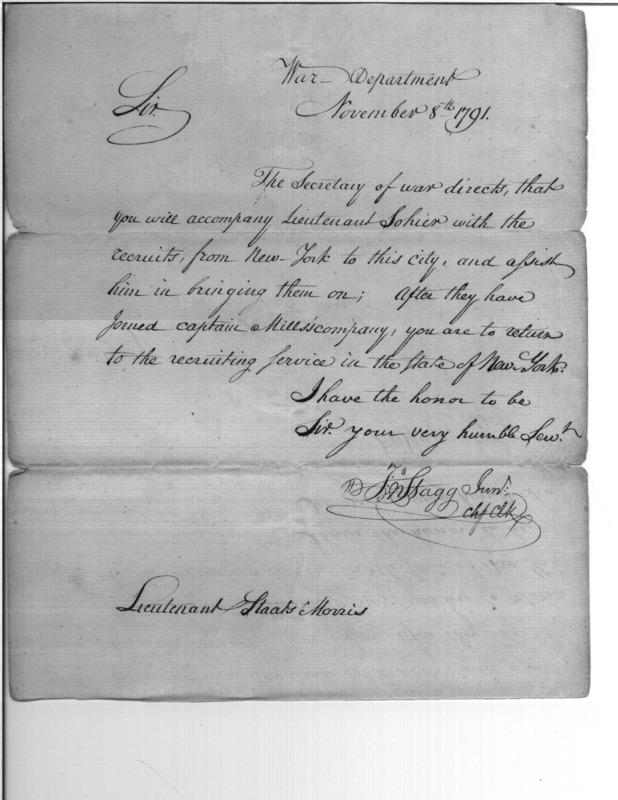 War Department
Sir.
November 8th 1791.
The Secretary of war directs, that
you will accompany Lieutenant Sohier with the
recruits, from New-York to this city, and assist
him in bringing them on; After they have
Joined captain Mills's company, you are to return
to the recruiting service in the State of New-York.
I have the honor to be
Sir. your very humble Servt.
Jno Stagg Junr.
chf Clk
Lieutenant Staats Morris